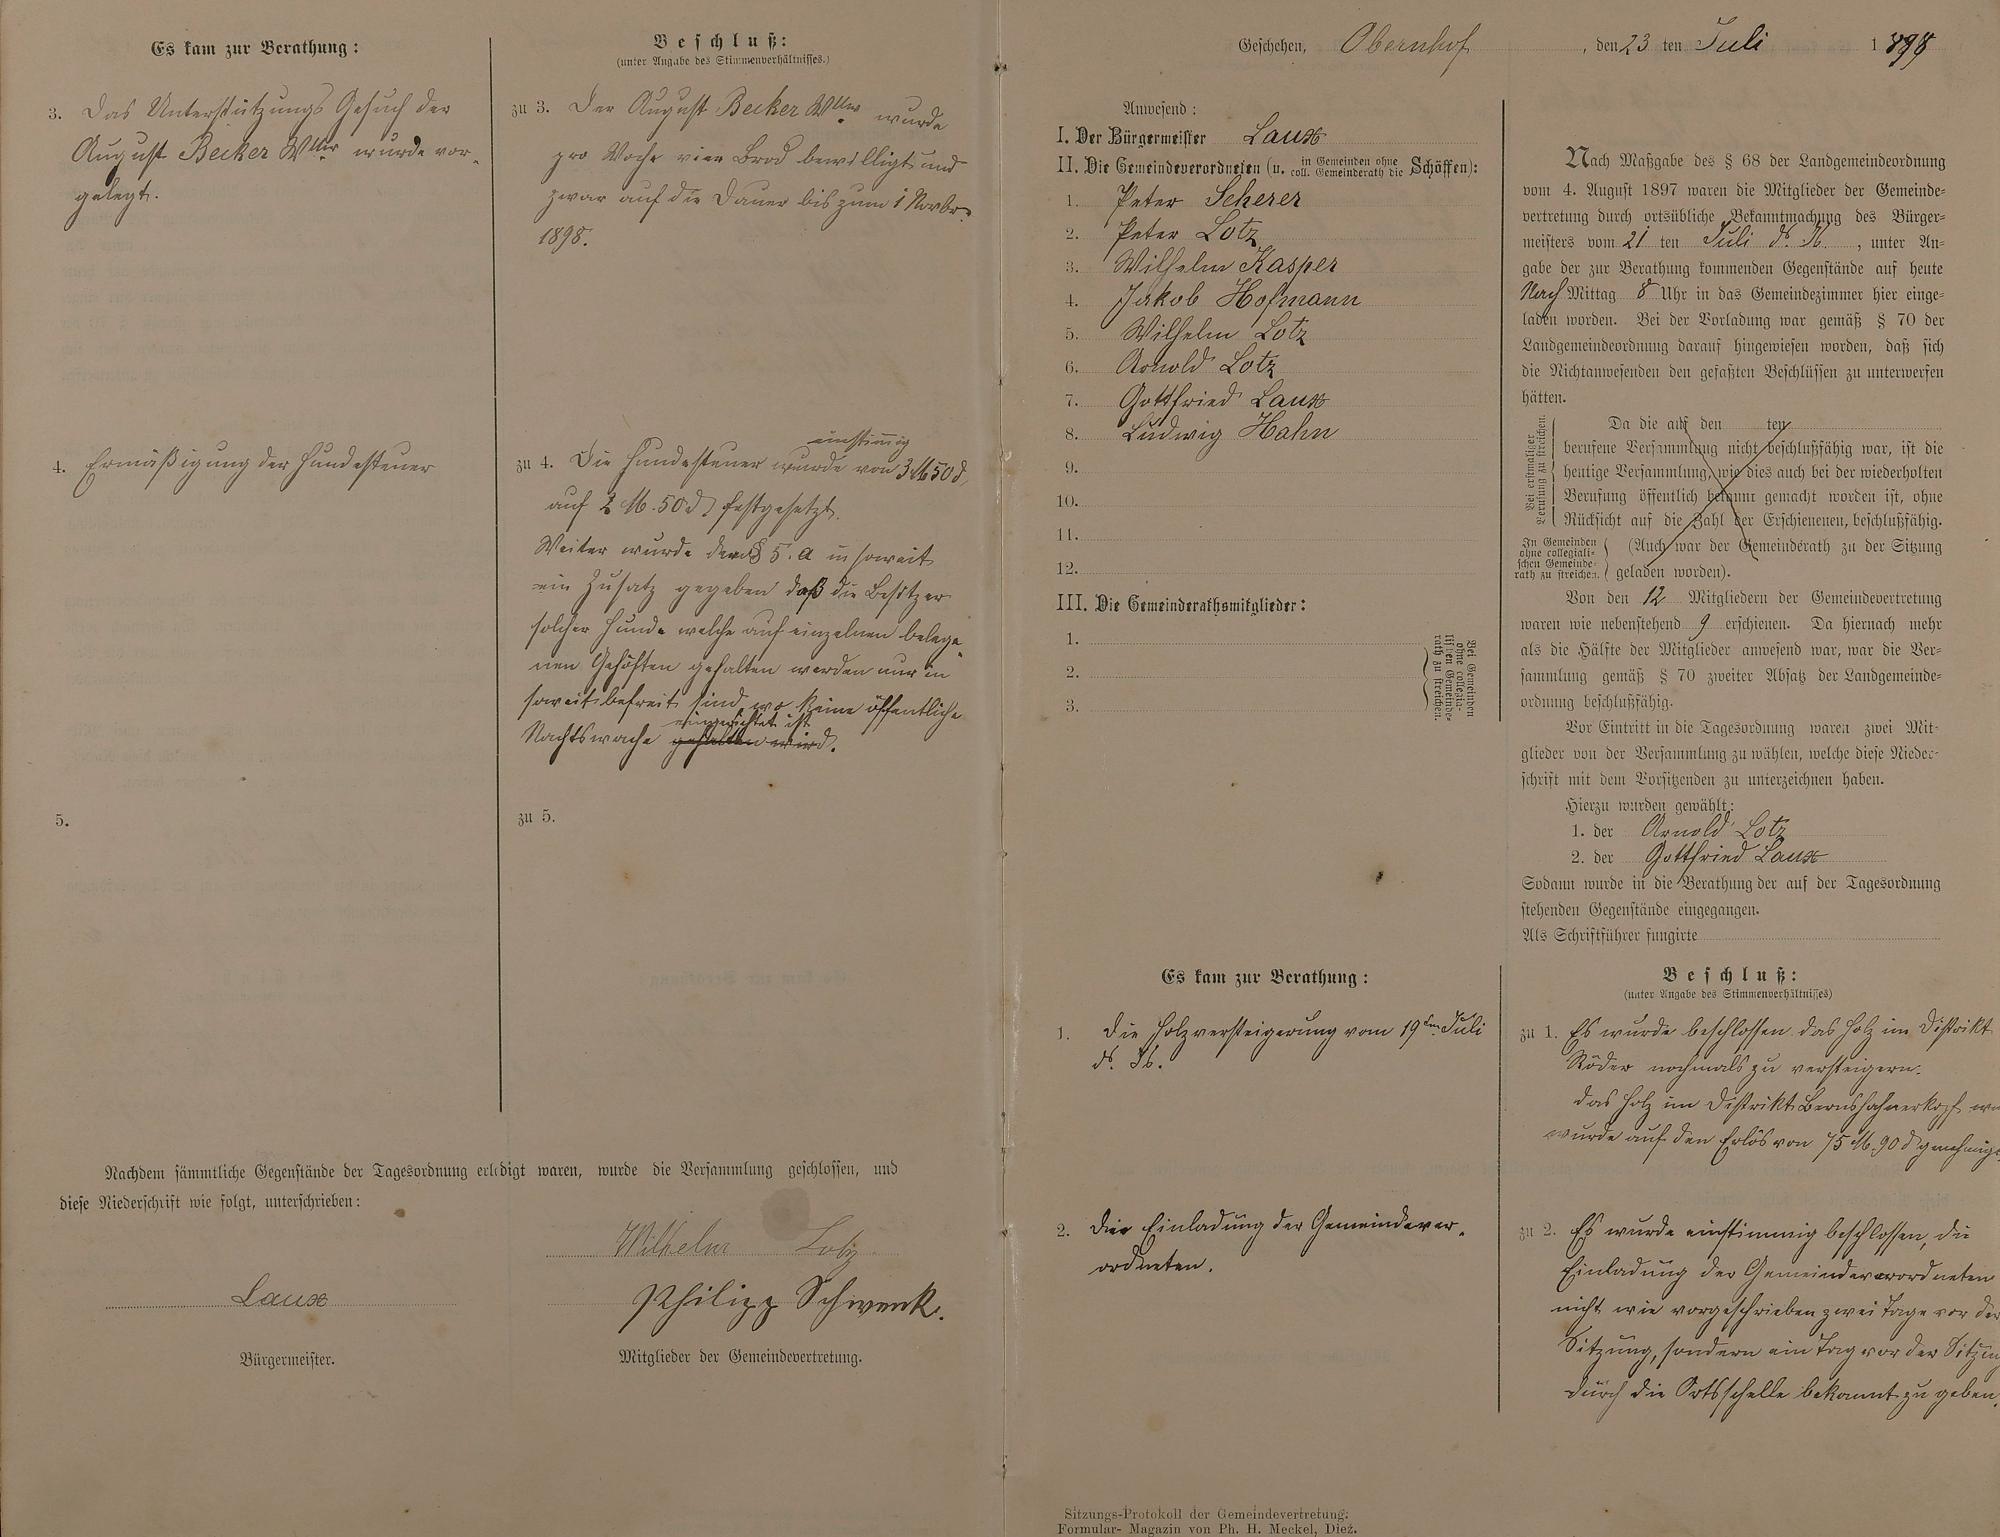 Es kam zur Berathung:
Beschluß:
(unter Angabe des Stimmenverhältnisses.)
3. Das Unterstützungs Gesuch der
August Becker Wttw wurde vor-
gelegt.
zu 3. Der August Becker Wttw wurde
pro Woche vier Brod bewilligt und
zwar auf die Dauer bis zum 1 Novbr.
1898.
4. Ermäßigung der Hundesteuer
einstimmig
zu 4. Die Hundesteuer wurde von 3 M 50 d
auf 2 M. 50 d festgesetzt.
Weiter wurde dem § 5. a in soweit
ein Zusatz gegeben daß die Besitzer
solcher Hunde welche auf einzelnen belege-
nen Gehöften gehalten werden nur in
soweit befreit sind, wo keine öffentliche
eingerichtet ist
Nachtswache gehalten wird.
5.
zu 5.
Nachdem sämmtliche Gegenstände der Tagesordnung erledigt waren, wurde die Versammlung geschlossen, und
diese Niederschrift wie folgt, unterschrieben:
Wilhelm Lotz
Laux
Philipp Schwenk.
Bürgermeister.
Mitglieder der Gemeindevertretung.
Geschehen, Obernhof, den 23 ten Juli 1898
Anwesend:
I. Der Bürgermeister Laux
II. Die Gemeindeverordneten (u. in Gemeinden ohne coll. Gemeinderath die Schöffen):
1. Peter Scherer
2. Peter Lotz
3. Wilhelm Kasper
4. Jakob Hofmann
5. Wilhelm Lotz
6. Arnold Lotz
7. Gottfried Laux
8. Ludwig Hahn
9.
10.
11.
12.
III. Die Gemeinderathsmitglieder:
1.
2.
3.
Bei Gemeinden
ohne collegia-
lischen Gemeinde-
rath zu streichen.
Nach Maßgabe des § 68 der Landgemeindeordnung
vom 4. August 1897 waren die Mitglieder der Gemeinde-
vertretung durch ortsübliche Bekanntmachung des Bürger-
meisters vom 21 ten Juli d. M., unter An-
gabe der zur Berathung kommenden Gegenstände auf heute
Nach Mittag 8 Uhr in das Gemeindezimmer hier einge-
laden worden. Bei der Vorladung war gemäß § 70 der
Landgemeindeordnung darauf hingewiesen worden, daß sich
die Nichtanwesenden den gefaßten Beschlüssen zu unterwerfen
hätten.
Bei erstmaliger
Berufung zu streichen.
Da die auf den ten
berufene Versammlung nicht beschlußfähig war, ist die
heutige Versammlung, wie dies auch bei der wiederholten
Berufung öffentlich bekannt gemacht worden ist, ohne
Rücksicht auf die Zahl der Erschienenen, beschlußfähig.
In Gemeinden
ohne collegiali-
schen Gemeinde-
rath zu streichen.
(Auch war der Gemeinderath zu der Sitzung
geladen worden).
Von den 12 Mitgliedern der Gemeindevertretung
waren wie nebenstehend 9 erschienen. Da hiernach mehr
als die Hälfte der Mitglieder anwesend war, war die Ver-
sammlung gemäß § 70 zweiter Absatz der Landgemeinde-
ordnung beschlußfähig.
Vor Eintritt in die Tagesordnung waren zwei Mit-
glieder von der Versammlung zu wählen, welche diese Nieder-
schrift mit dem Vorsitzenden zu unterzeichnen haben.
Hierzu wurden gewählt:
1. der Arnold Lotz
2. der Gottfried Laux
Sodann wurde in die Berathung der auf der Tagesordnung
stehenden Gegenstände eingegangen.
Als Schriftführer fungirte
Es kam zur Berathung:
Beschluß:
(unter Angabe des Stimmenverhältnisses)
1. Die Holzversteigerung vom 19ten Juli
d. Js.
zu 1. Es wurde beschlossen das Holz im Distrikt
Röder nochmals zu versteigern.
das Holz im Distrikt
wurde auf den Erlös von 75 M. 90 d genehmigt
2. Die Einladung der Gemeindever-
ordneten.
zu 2. Es wurde einstimmig beschlossen, die
Einladung der Gemeindeverordneten
nicht wie vorgeschrieben zwei Tage vor der
Sitzung, sondern ein Tag vor der Sitzung
durch die Ortsschelle bekannt zu geben.
Sitzungs-Protokoll der Gemeindevertretung.
Formular-Magazin von Ph. H. Meckel, Diez.